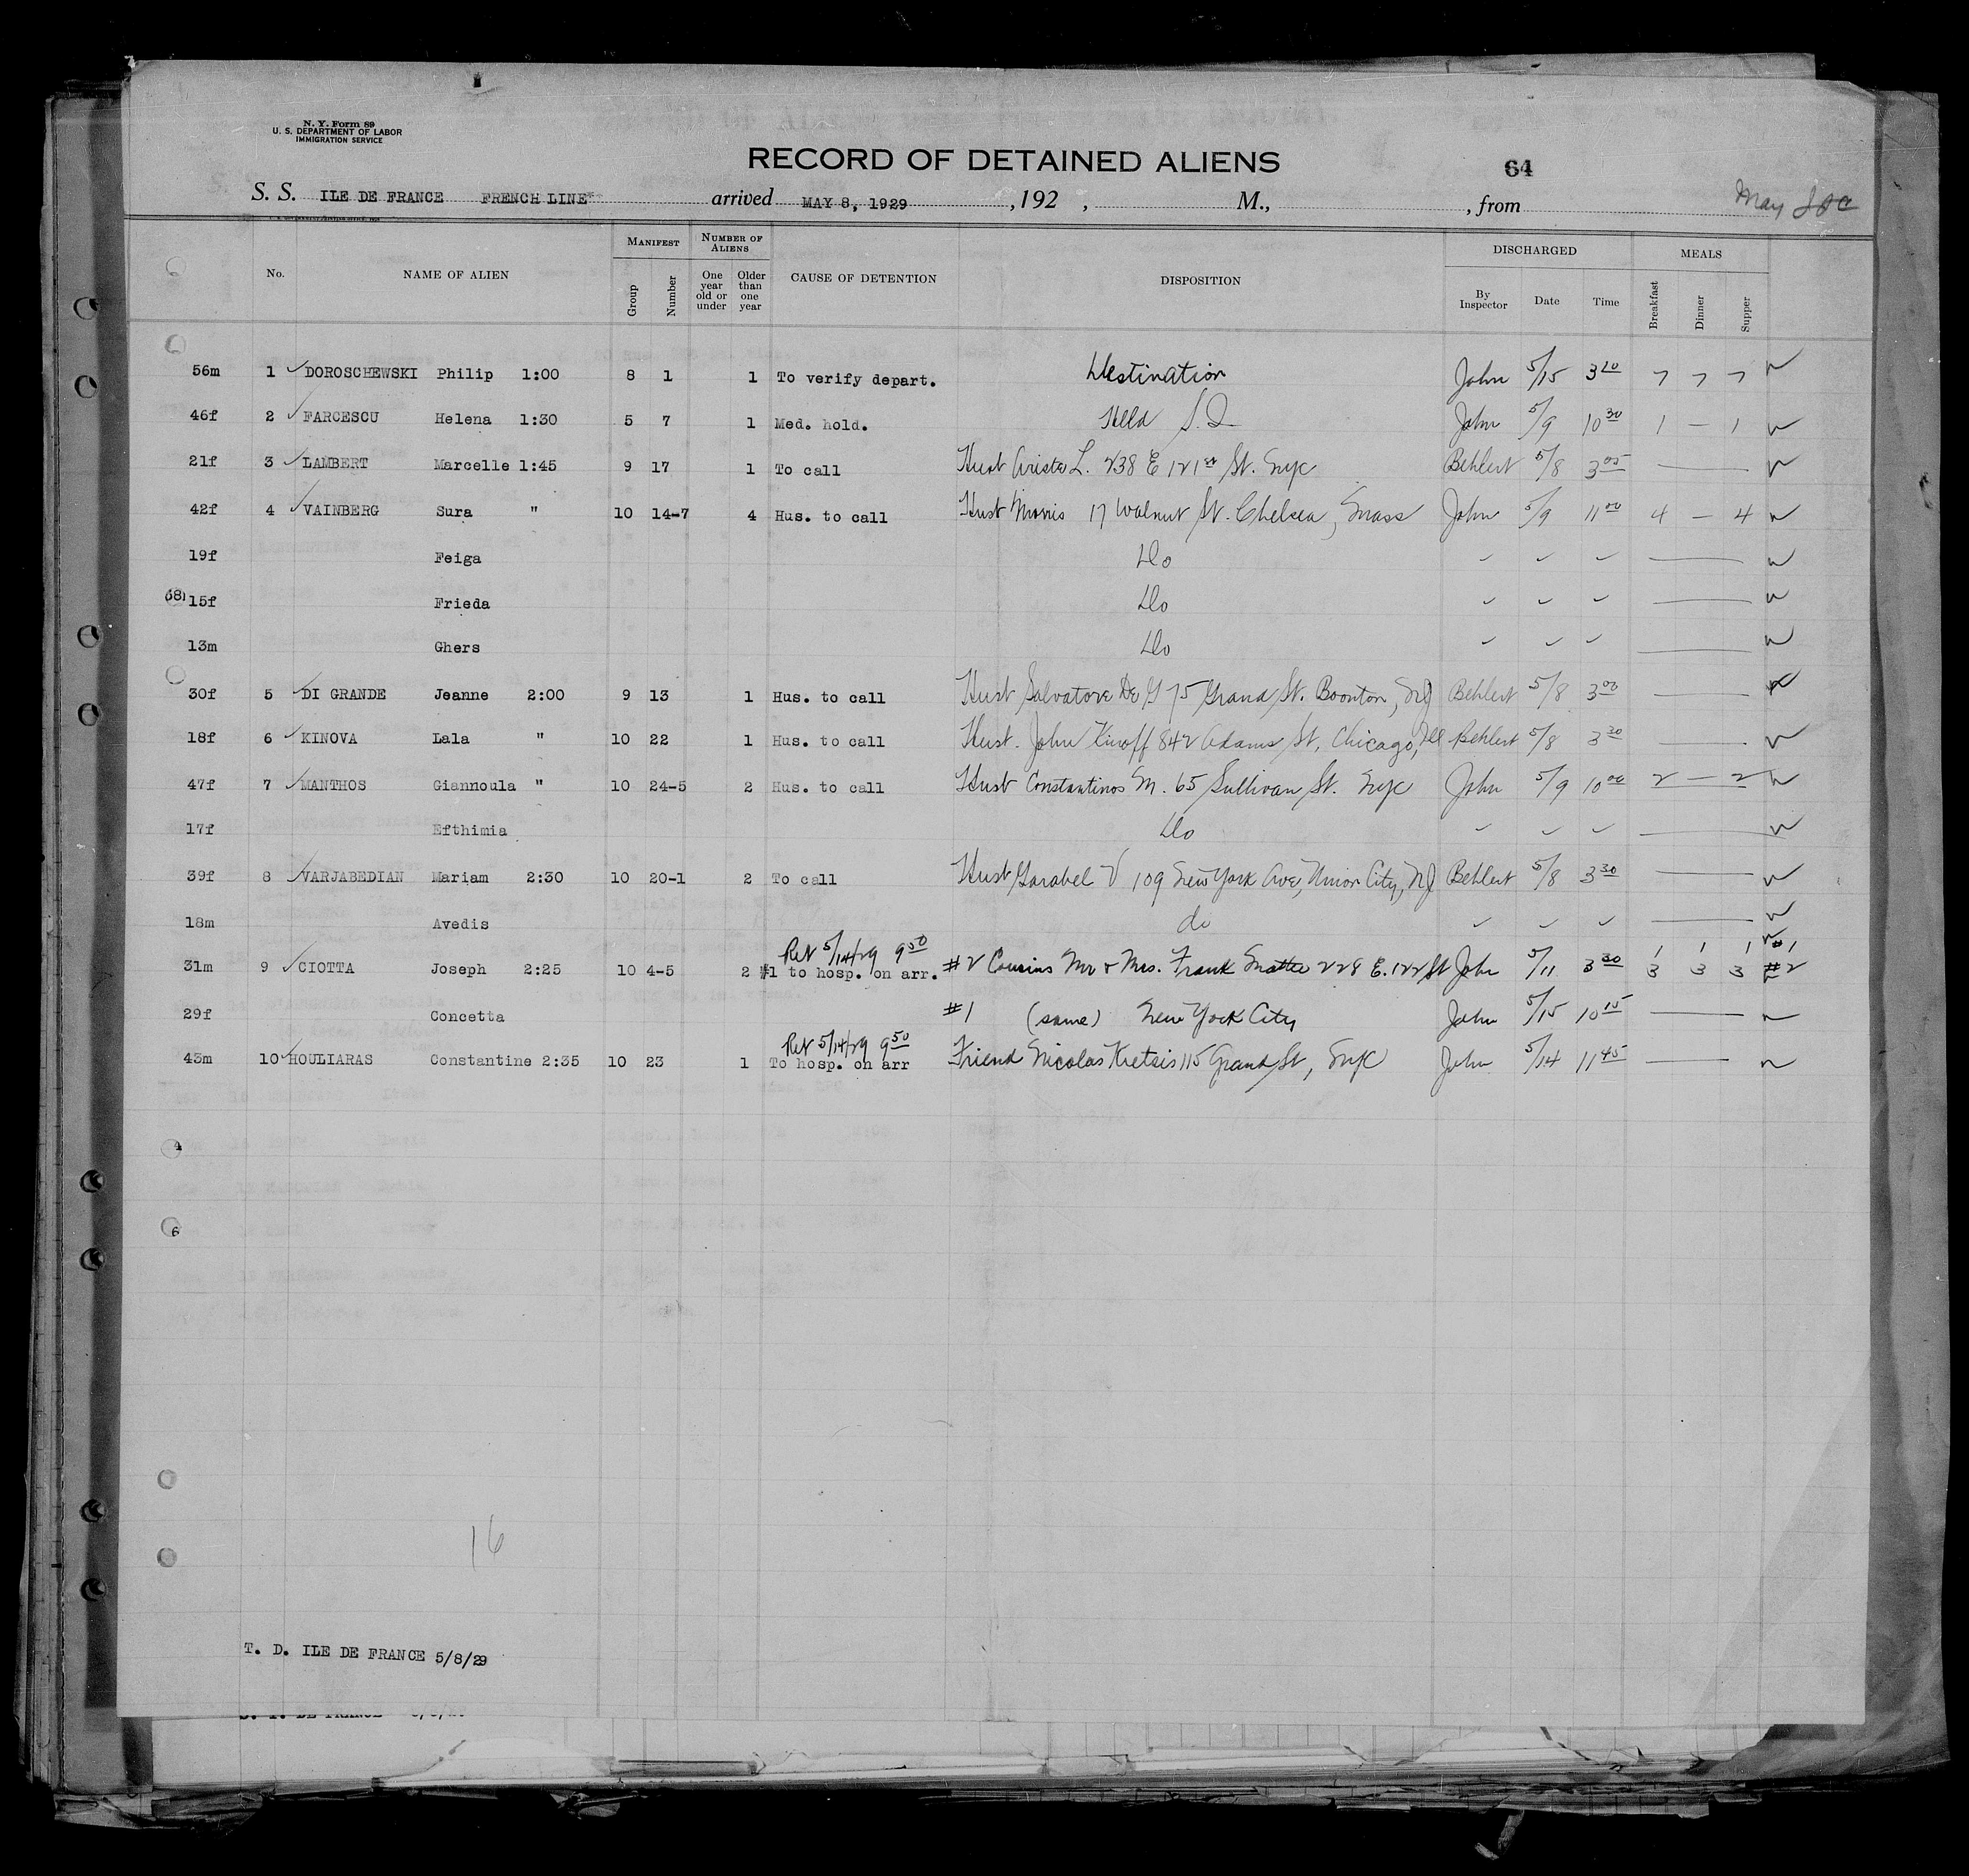 N. Y. Form 89
U. S. DEPARTMENT OF LABOR
IMMIGRATION SERVICE
RECORD OF DETAINED ALIENS
64
S. S. ILE DE FRANCE FRENCH LINE arrived MAY 8, 1929 , 192 , M., , from May
No. NAME OF ALIEN MANIFEST Group Number NUMBER OF ALIENS One year old or under Older than one year CAUSE OF DETENTION DISPOSITION DISCHARGED By Inspector Date Time MEALS Breakfast Dinner Supper
56m 1 DOROSCHEWSKI Philip 1:00 8 1 1 To verify depart. Destination John 5/15 3 20 7 7 7
46f 2 FARCESCU Helena 1:30 5 7 1 Med. hold. Held S.I. John 5/9 10 30 1 — 1
21f 3 LAMBERT Marcelle 1:45 9 17 1 To call Hust Ariste L. 238 E 121st St. NYC Behlert 5/8 3 05
42f 4 VAINBERG Sura " 10 14-7 4 Hus. to call Hust Morris 17 Walnut St. Chelsea, Mass John 5/9 11 00 4 — 4
19f Feiga Do
15f Frieda Do
13m Ghers Do
30f 5 DI GRANDE Jeanne 2:00 9 13 1 Hus. to call Hust Salvatore De G 75 Grand St. Boonton, NJ Behlert 5/8 3 00
18f 6 KINOVA Lala " 10 22 1 Hus. to call Hust. John Kinoff 842 Adams St, Chicago, Ill Behlert 5/8 3 30
47f 7 MANTHOS Giannoula " 10 24-5 2 Hus. to call Hust Constantinos M. 65 Sullivan St. NYC John 5/9 10 00 2 — 2
17f Efthimia Do
39f 8 VARJABEDIAN Mariam 2:30 10 20-1 2 To call Hust Garabel V 109 New York Ave, Union City, NJ Behlert 5/8 3 30
18m Avedis do
Ret 5/14/29 9 50 1 1 1 #1
31m 9 CIOTTA Joseph 2:25 10 4-5 2 #1 to hosp. on arr. #2 Cousins Mr & Mrs. Frank 228 E. 122 St John 5/11 3 30 3 3 3 #2
29f Concetta #1 (same) New York City John 5/15 10 15
Ret 5/14/29 9 50
43m 10 HOULIARAS Constantine 2:35 10 23 1 To hosp. on arr Friend Nicolas Kretsis 115 Grand St, NYC John 5/14 11 45
4
6
16
T. D. ILE DE FRANCE 5/8/29